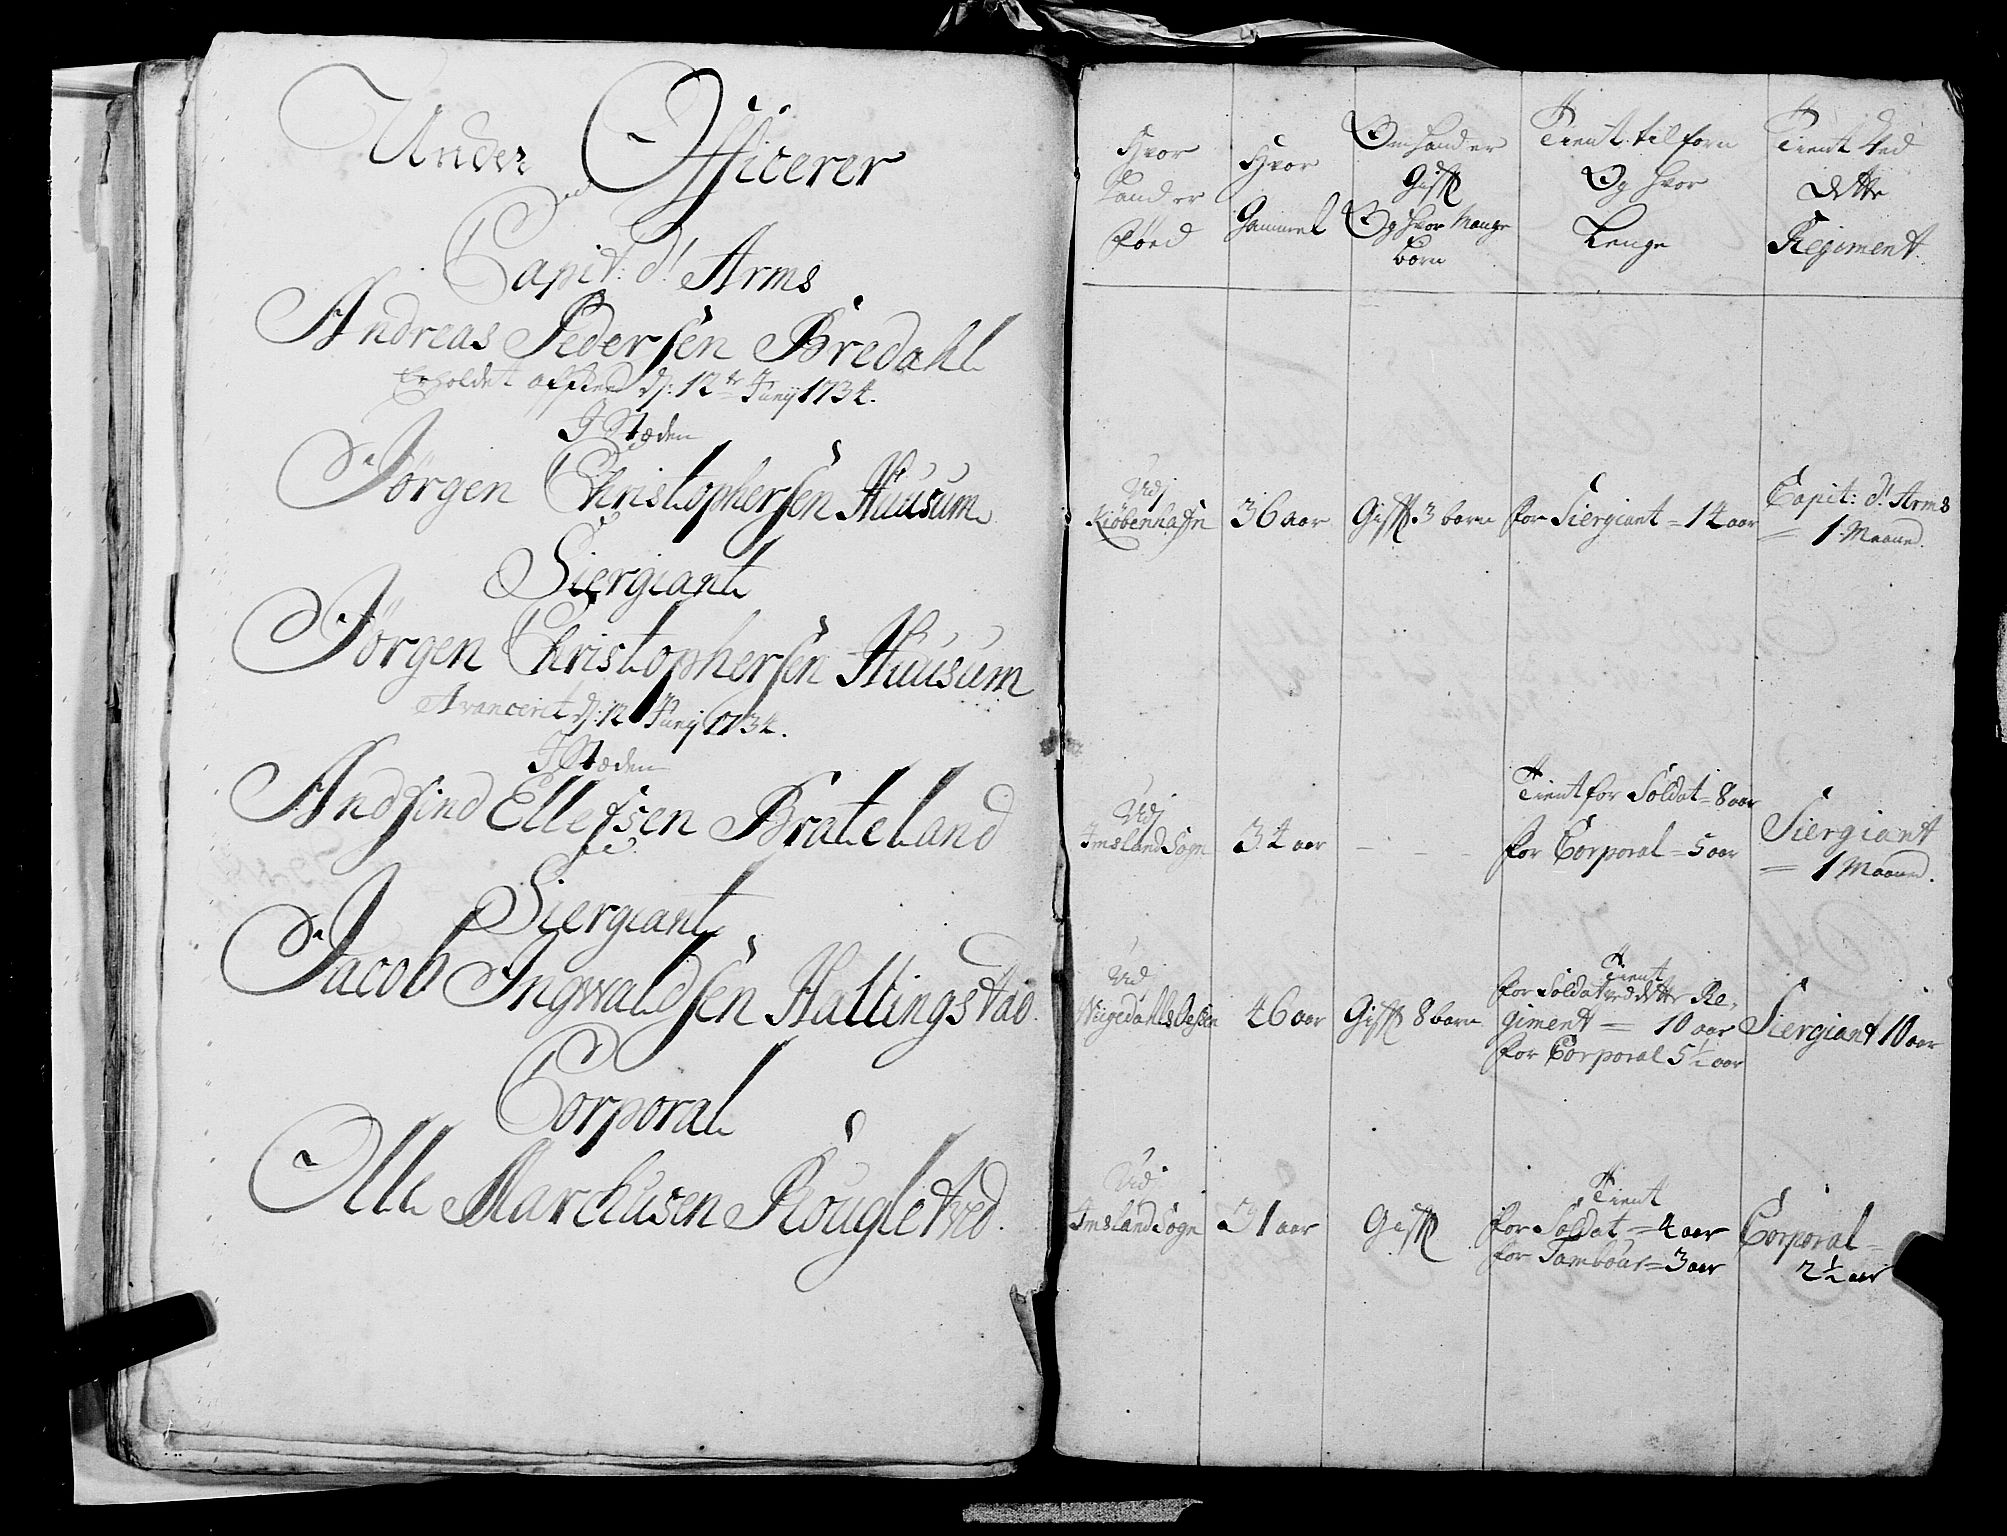 Under Officerer
Capit: d'Arms
Andreas Pedersen Bredahl
Erholdet affsced d: 12te Junij 1734.
I Stæden
Jørgen Christophersen Huusum
Siergiant
Jørgen Christophersen Huusum
Avanceret d: 12 Junij 1734.
I Stæden
Andfind Ellefsen Brateland
Siergiant
Jacob Ingwaldsen Hattingstad.
Corporal
Olle Marchusen Rougletved.
Hvor
hand er
föed
Hvor
Gammel
Om hand er
Gifft
Og hvor Mange
born
Tient tilforn
Og hvor
Lenge
Tient Ved
dette
Regiment.
Udj
Kiöbenhafn
36 aar
Gifft 3 born
for Siergiant = 14 aar
Capit: d'Arms
= 1 Maaned.
Udj
Imsland Sogn
34 aar
- - -
Tient for Soldat = 8 aar
for Corporal = 5 aar
Siergiant
= 1 Maaned.
Ud
46 aar
Gifft 8 born
Tient
for Soldat ved dette Re-
giment = 10 aar
for Corporal 5½ aar
Siergiant 10 aar
Udj
Imsland Sogn
31 aar
Gifft
Tient
for Soldat = 4 aar
for Tambour = 3 aar
Corporal =
2½ aar